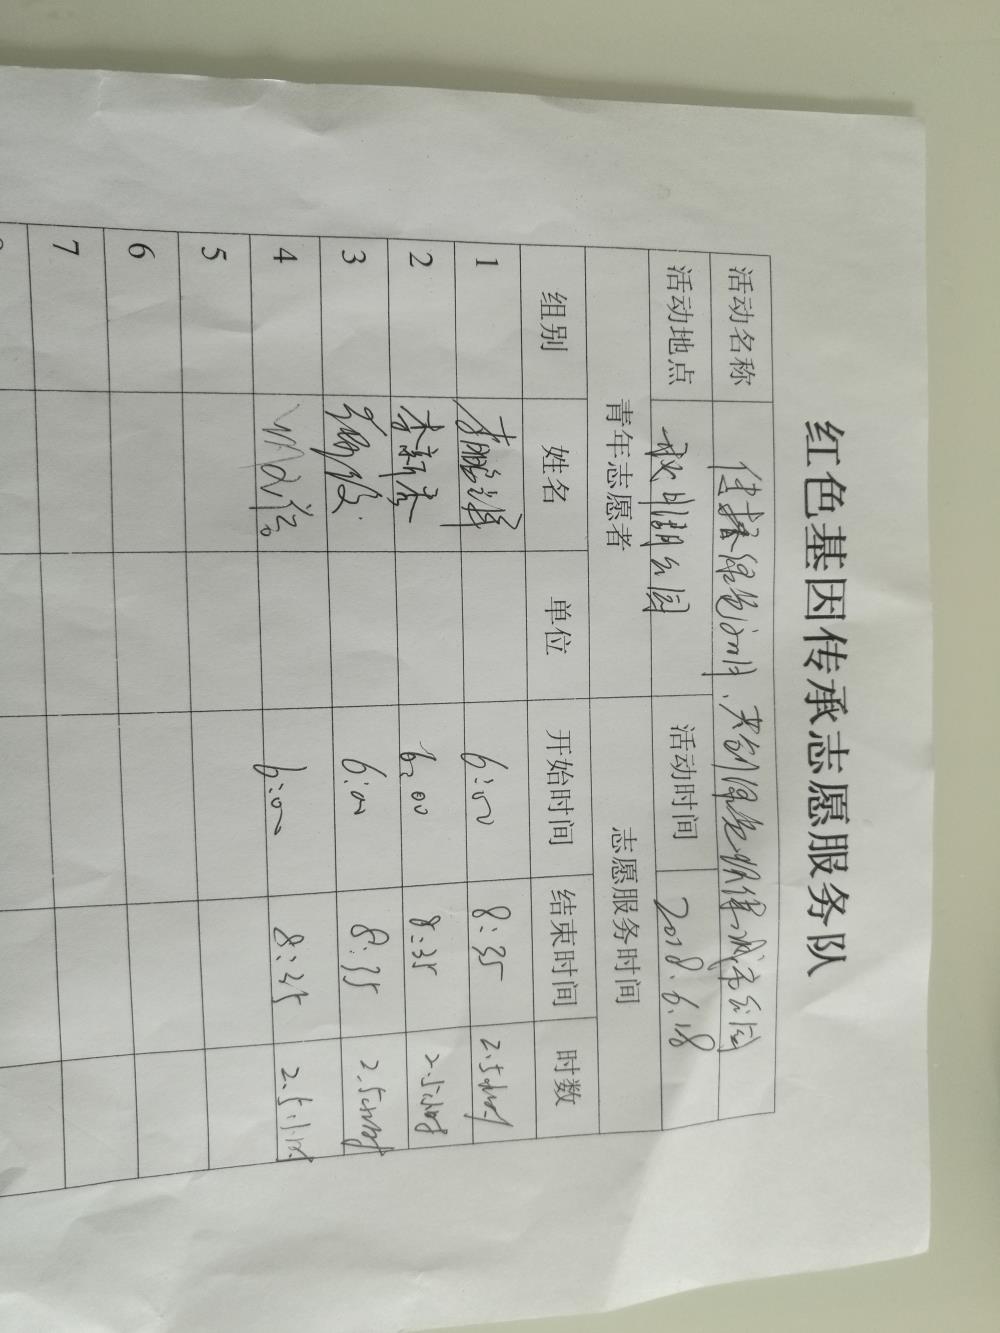 红色基因传承志愿服务队
活动名称 传播绿色 共创绿色环保 公园
活动地点 明湖公园 活动时间 2018.6.18
青年志愿者 志愿服务时间
组别 姓名 单位 开始时间 结束时间 时数
1 李鹏 6:00 8:35 2.5小时
2 李新春 6:00 8:35 2.5小时
3 6:00 8:35 2.5小时
4 6:00 8:35 2.5小时
5
6
7